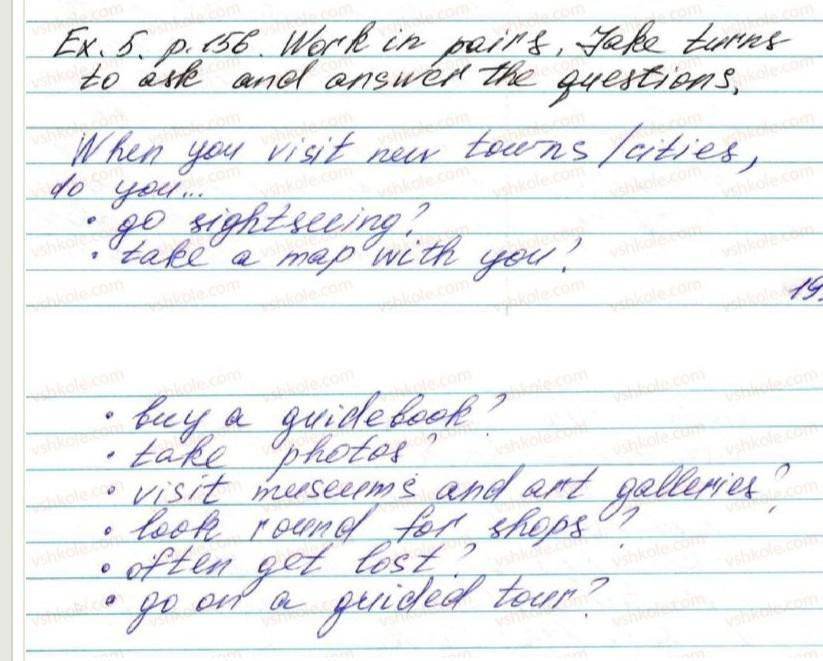 Ex. 5. p. 156. Work in pairs. Take turns
to ask and answer the questions.
When you visit new towns/cities,
do you...
• go sightseeing?
• take a map with you?
19
• buy a guidebook?
• take photos?
• visit museums and art galleries?
• look round for shops?
• often get lost?
• go on a guided tour?